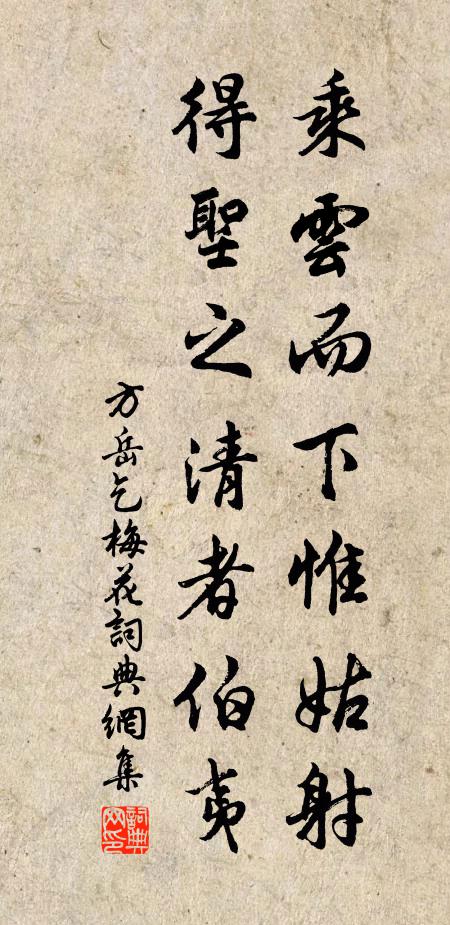 乘雲而下惟姑射
得聖之清者伯夷
方岳乞梅花詞典網集
詞典網印